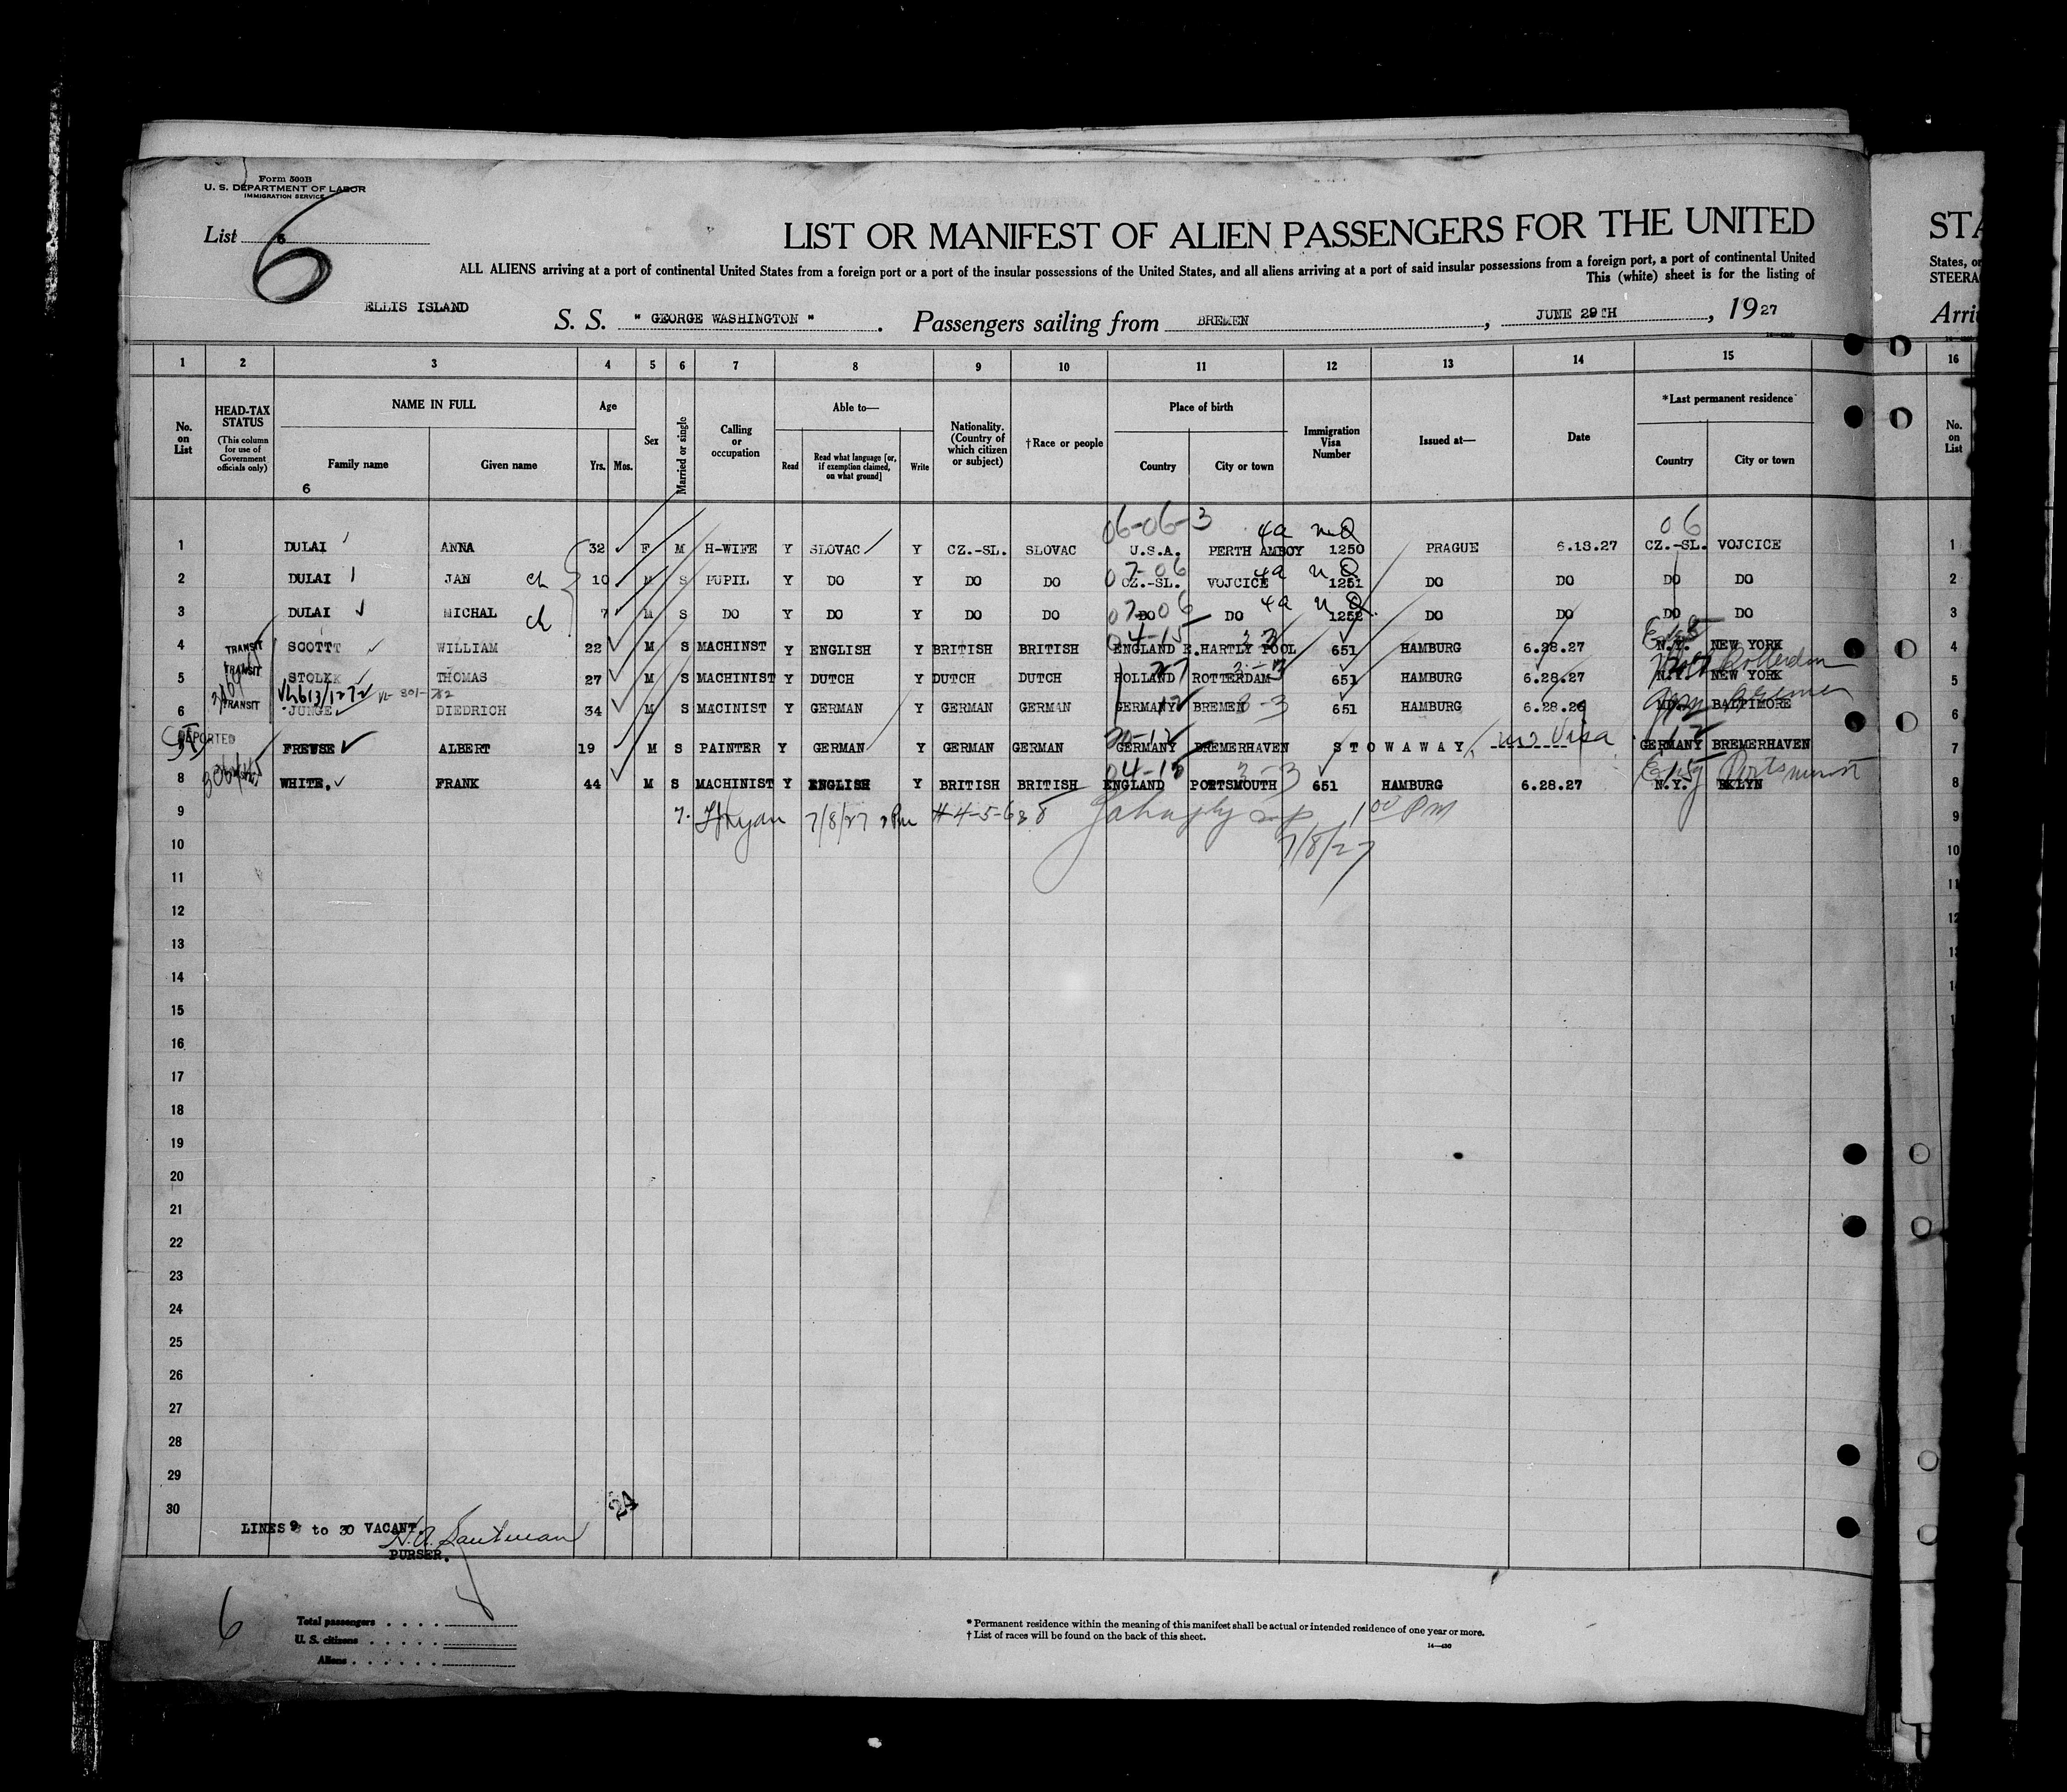 Form 500B
U. S. DEPARTMENT OF LABOR
IMMIGRATION SERVICE
List 6
6
LIST OR MANIFEST OF ALIEN PASSENGERS FOR THE UNITED STA
ALL ALIENS arriving at a port of continental United States from a foreign port or a port of the insular possessions of the United States, and all aliens arriving at a port of said insular possessions from a foreign port, a port of continental United States, or
This (white) sheet is for the listing of STEERA
ELLIS ISLAND S. S. " GEORGE WASHINGTON ". Passengers sailing from BREMEN, JUNE 29TH, 1927 Arri
1 2 3 4 5 6 7 8 9 10 11 12 13 14 15 16
No. on List
HEAD-TAX STATUS (This column for use of Government officials only)
NAME IN FULL Family name Given name
Age Yrs. Mos.
Sex
Married or single
Calling or occupation
Able to— Read Read what language [or, if exemption claimed, on what ground] Write
Nationality. (Country of which citizen or subject)
†Race or people
Place of birth Country City or town
Immigration Visa Number
Issued at—
Date
*Last permanent residence Country City or town
No. on List
6
06-06-3 4a nQ 06
1 DULAI ANNA 32 F M H-WIFE Y SLOVAC Y CZ.-SL. SLOVAC U.S.A. PERTH AMBOY 1250 PRAGUE 6.18.27 CZ.-SL. VOJCICE 1
07-06 4a nQ
2 DULAI JAN ch 10 M S PUPIL Y DO Y DO DO CZ.-SL. VOJCICE 1251 DO DO DO DO 2
07-06 4a nQ
3 DULAI MICHAL ch 7 M S DO Y DO Y DO DO DO DO 1252 DO DO DO DO 3
04-15 3-3
4 TRANSIT SCOTT WILLIAM 22 M S MACHINST Y ENGLISH Y BRITISH BRITISH ENGLAND E.HARTLY POOL 651 HAMBURG 6.28.27 N.Y. NEW YORK 4
Rotterdam
5 TRANSIT STOLK THOMAS 27 M S MACHINIST Y DUTCH Y DUTCH DUTCH HOLLAND ROTTERDAM 651 HAMBURG 6.28.27 N.Y. NEW YORK 5
Bremen
6 TRANSIT JUNGE DIEDRICH 34 M S MACINIST Y GERMAN Y GERMAN GERMAN GERMANY BREMEN 651 HAMBURG 6.28.26 MD. BALTIMORE 6
DEPORTED
7 FREUSE ALBERT 19 M S PAINTER Y GERMAN Y GERMAN GERMAN GERMANY BREMERHAVEN STOWAWAY, no Visa GERMANY BREMERHAVEN 7
Eng Portsmouth
8 WHITE, FRANK 44 M S MACHINIST Y ENGLISH Y BRITISH BRITISH ENGLAND PORTSMOUTH 651 HAMBURG 6.28.27 N.Y. BKLYN 8
9 7. 7/8/27 #4-5-6&8 1 00 PM 9
10 7/8/27 10
11 11
12 12
13
14
15
16
17
18
19
20
21
22
23
24
25
26
27
28
29
30
24
LINES 9 to 30 VACANT.
PURSER.
6
Total passengers
U. S. citizens
Aliens
* Permanent residence within the meaning of this manifest shall be actual or intended residence of one year or more.
† List of races will be found on the back of this sheet.